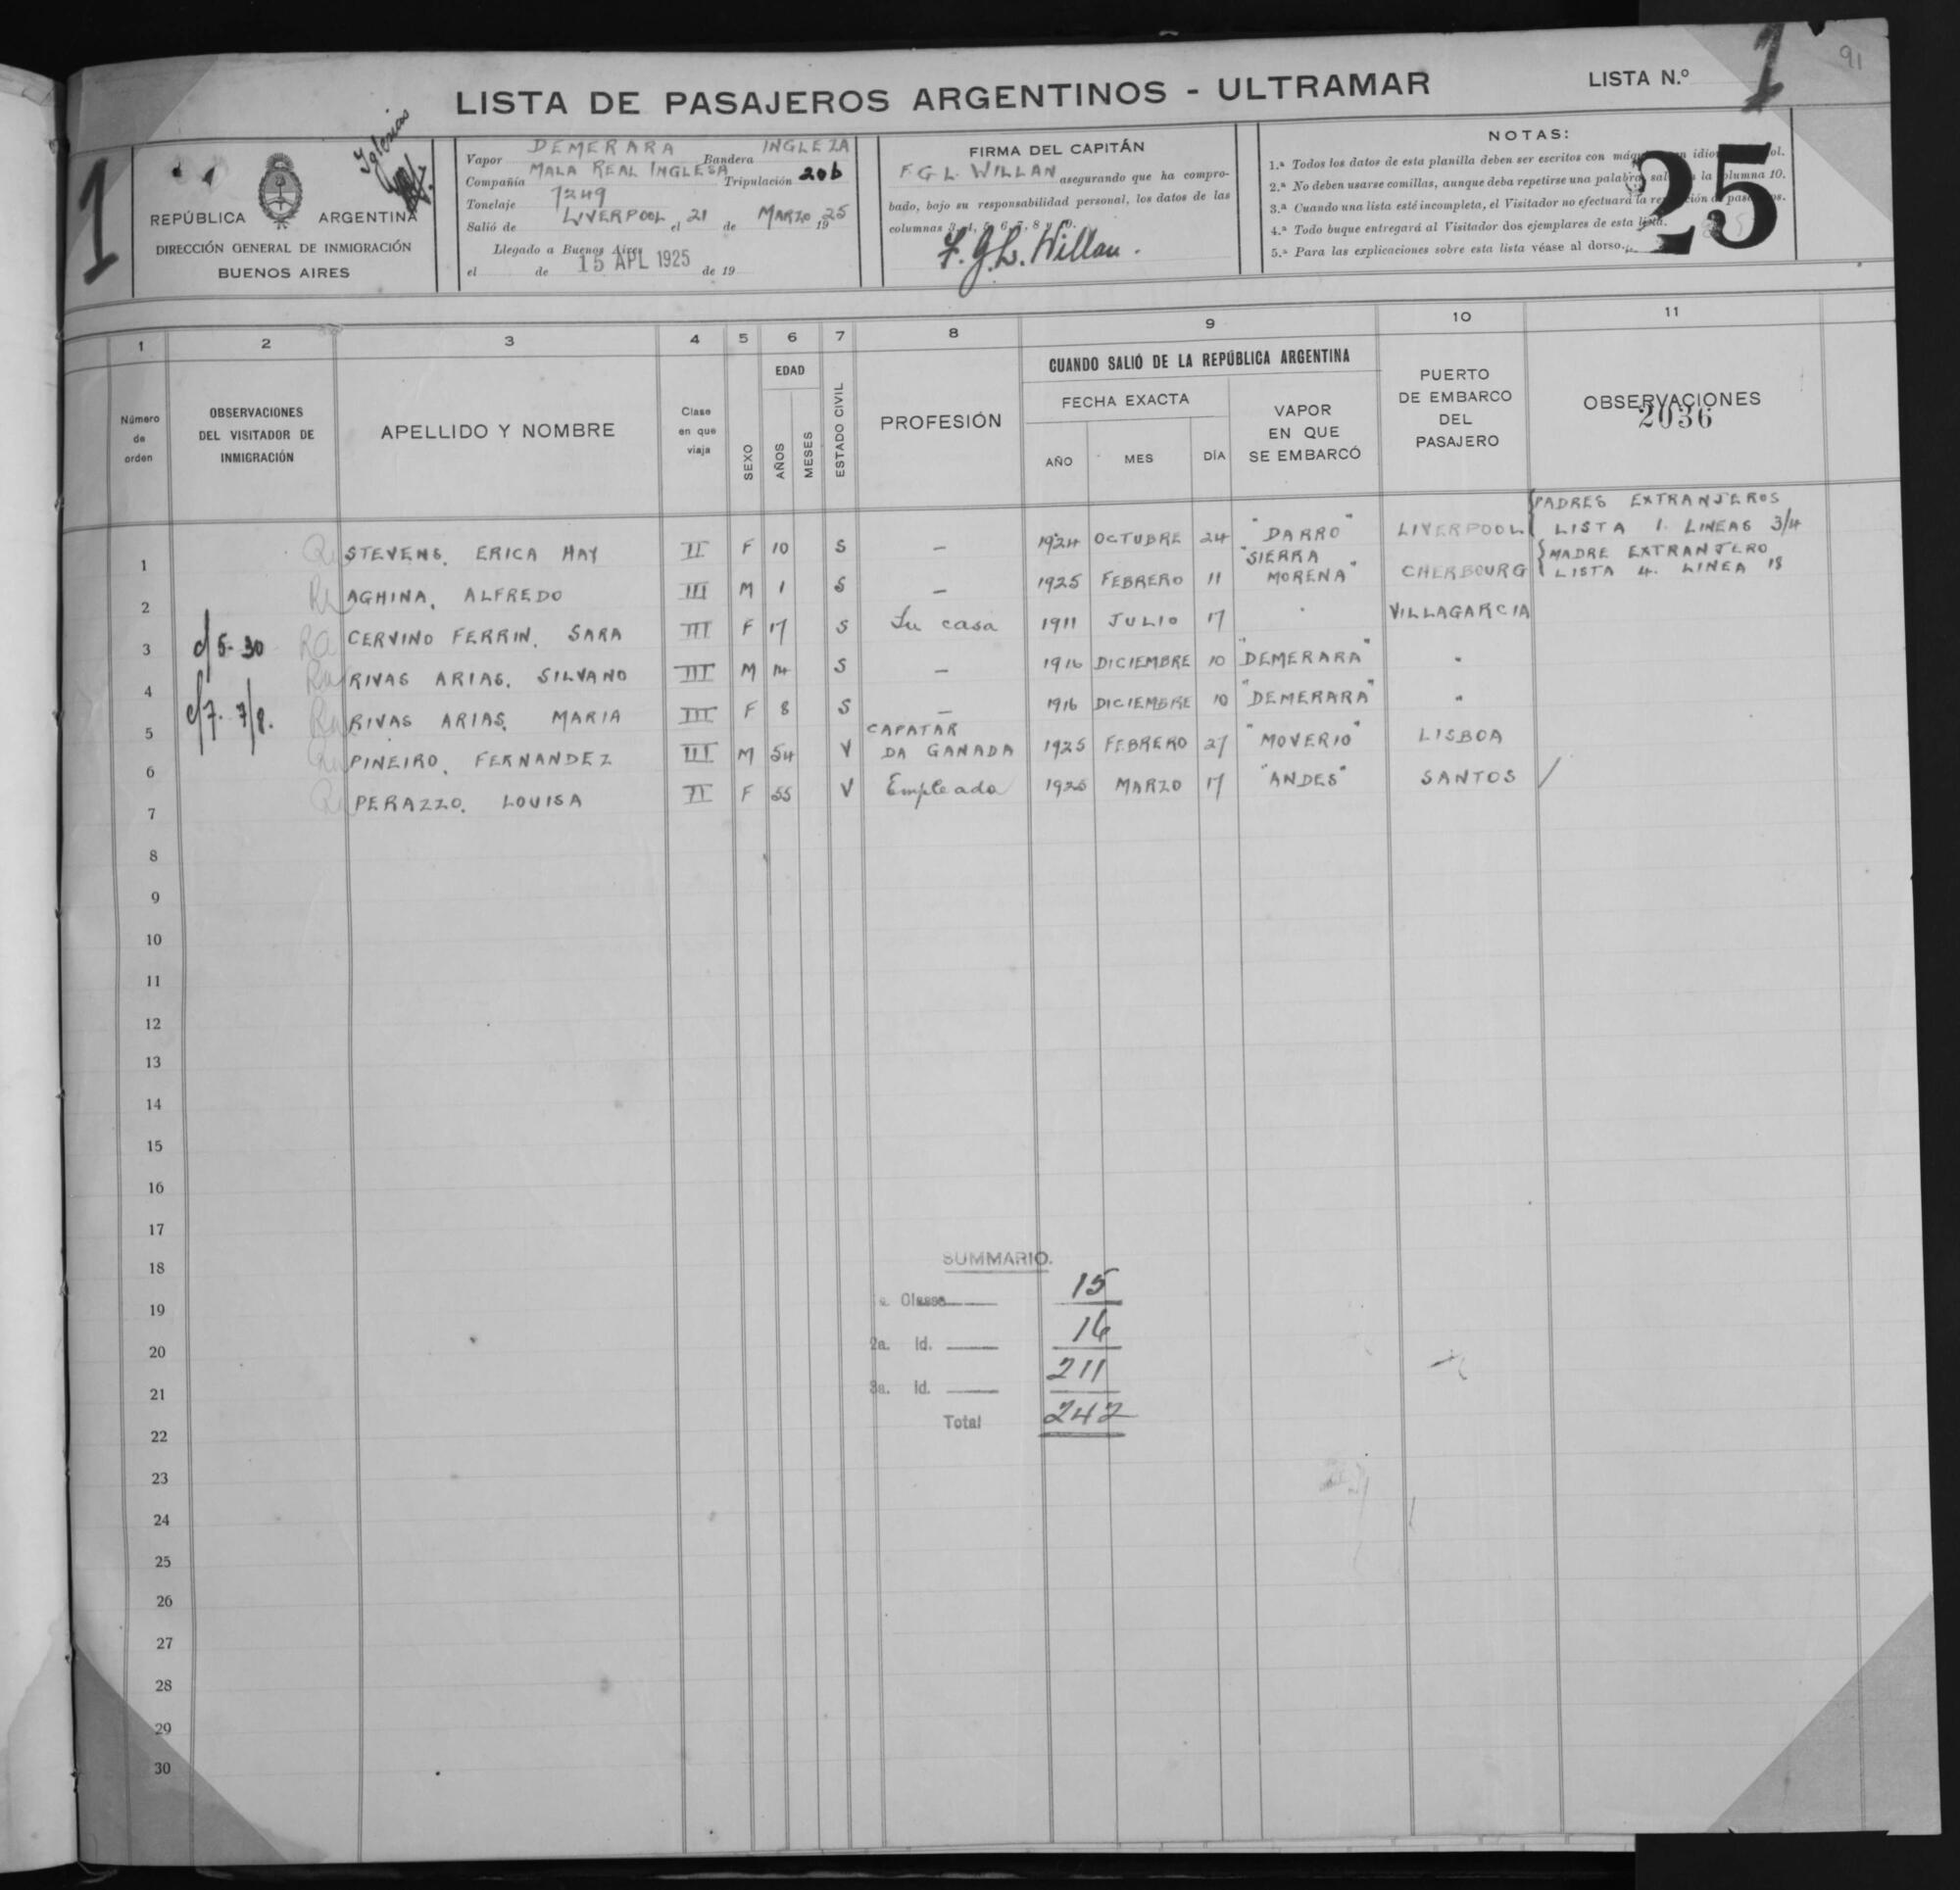 91
LISTA DE PASAJEROS ARGENTINOS - ULTRAMAR
LISTA N.º 1
1
Iglesias
REPÚBLICA ARGENTINA
DIRECCIÓN GENERAL DE INMIGRACIÓN
BUENOS AIRES
Vapor DEMERARA Bandera INGLEZA
Compañía MALA REAL INGLESA Tripulación 206
Tonelaje 7249
Salió de LIVERPOOL el 21 de MARZO 1925
Llegado a Buenos Aires
el de 15 APL 1925 de 19
FIRMA DEL CAPITÁN
F G L. WILLAN asegurando que ha compro-
bado, bajo su responsabilidad personal, los datos de las
columnas 3, 4, 5, 6, 7, 8 y 9.
F. G. L. Willan.
NOTAS:
1.ª Todos los datos de esta planilla deben ser escritos con
2.ª No deben usarse comillas, aunque deba repetirse una palabra, la columna 10.
3.ª Cuando una lista esté incompleta, el Visitador no efectuará la
4.ª Todo buque entregará al Visitador dos ejemplares de esta lista.
5.ª Para las explicaciones sobre esta lista véase al dorso.
25
1 2 3 4 5 6 7 8 9 10 11
Número de orden
OBSERVACIONES DEL VISITADOR DE INMIGRACIÓN
APELLIDO Y NOMBRE
Clase en que viaja
SEXO
EDAD
AÑOS
MESES
ESTADO CIVIL
PROFESIÓN
CUANDO SALIÓ DE LA REPÚBLICA ARGENTINA
FECHA EXACTA
AÑO MES DÍA
VAPOR EN QUE SE EMBARCÓ
PUERTO DE EMBARCO DEL PASAJERO
OBSERVACIONES
2036
PADRES EXTRANJEROS
1 STEVENS, ERICA HAY II F 10 S — 1924 OCTUBRE 24 "DARRO" LIVERPOOL LISTA 1. LINEAS 3/4
2 AGHINA, ALFREDO III M 1 S — 1925 FEBRERO 11 "SIERRA MORENA" CHERBOURG MADRE EXTRANJERO LISTA 4. LINEA 18
3 c/5-30 CERVINO FERRIN, SARA III F 17 S Su casa 1911 JULIO 17 VILLAGARCIA
4 RIVAS ARIAS, SILVANO III M 14 S — 1916 DICIEMBRE 10 "DEMERARA" "
5 c/7-7/8. RIVAS ARIAS, MARIA III F 8 S — 1916 DICIEMBRE 10 "DEMERARA" "
6 PINEIRO, FERNANDEZ III M 54 V CAPATAR DA GANADA 1925 FEBRERO 27 "MOVERIO" LISBOA
7 PERAZZO, LOUISA II F 55 V Empleada 1925 MARZO 17 "ANDES" SANTOS /
8
9
10
11
12
13
14
15
16
17
18
19
20
21
22
23
24
25
26
27
28
29
30
SUMMARIO.
a. Classe 15
2a. Id. 16
3a. Id. 211
Total 242